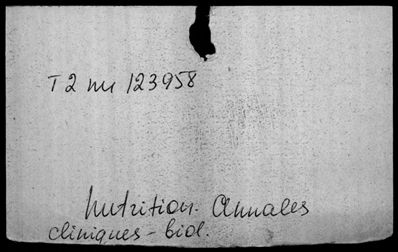 T2 nr 123958
Nutrition. Annales
cliniques - biol.